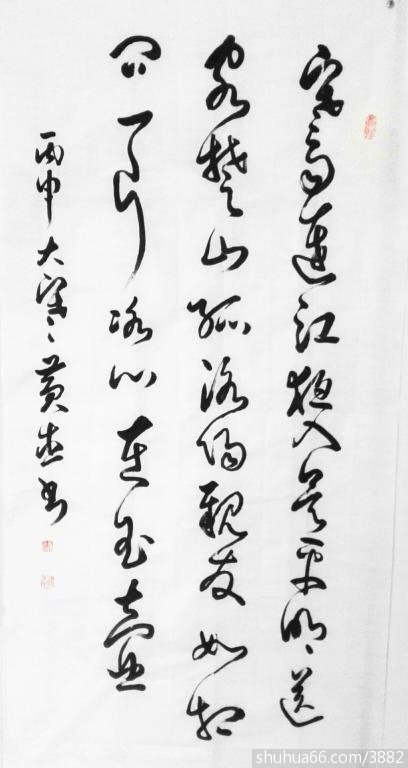 寒雨連江夜入吴平明送
客楚山孤洛陽親友如相
问一片冰心在玉壺
丙申大寒黄书
shuhua66.com/3882